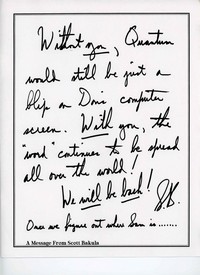 Without you, Quantum
would still be just a
blip on Don's computer
screen. With you, the
"word" continues to be spread
all over the world!
We will be back!
S.B.
Once we figure out where Sam is.......
A Message From Scott Bakula